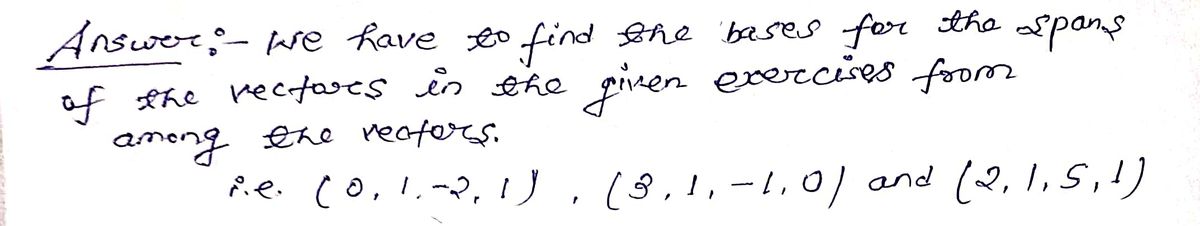 Answer:- We have to find the bases for the spans
of the vectors in the given exercises from
among the vectors.
i.e. (0, 1, -2, 1), (3, 1, -1, 0) and (2, 1, 5, 1)